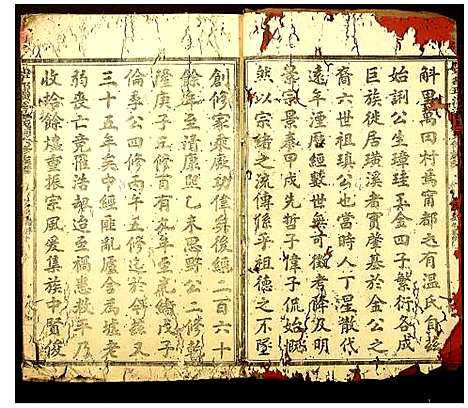 斛田萬田村蔦甯都之有溫氏自玆
始詞公生璋珪玉金四子繁衍各成
巨族徙居璜溪者實肇基於金公之
裔六世祖瑱公也當時人丁星散代
遠年湮曆經數世無可徵者降及明
景宗景泰甲戌先哲子偉子侃始
然以宗緒之流傳係乎祖德之不墜
創修家乘厥功偉矣後經二百六十
餘年至淸康熙乙未思野公二修乾
隆庚子三修百有九年至光緒戊子
倫季公四修丙午五修迄於今玆又
三十五年矣中經匪亂廬舍為墟老
弱喪亡竞罹浩刧造至禍患救平乃
收拾餘燼重振宗風爰集族中賢俊